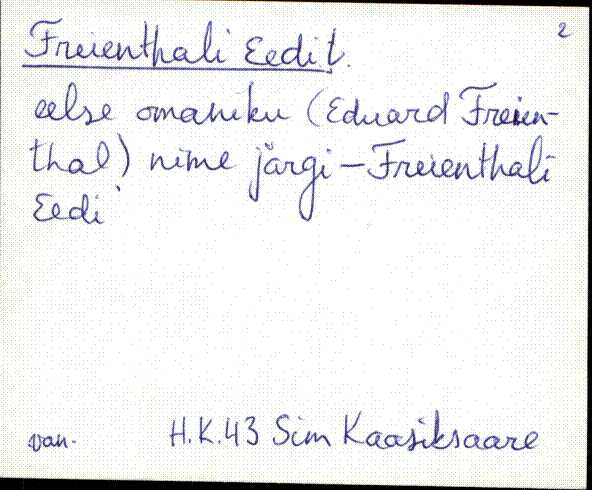 2
Freienthali Eedi t.
eelse omaniku (Eduard Freien-
thal) nime järgi – Freienthali
Eedi
van. H.K.43 Sim Kaasiksaare